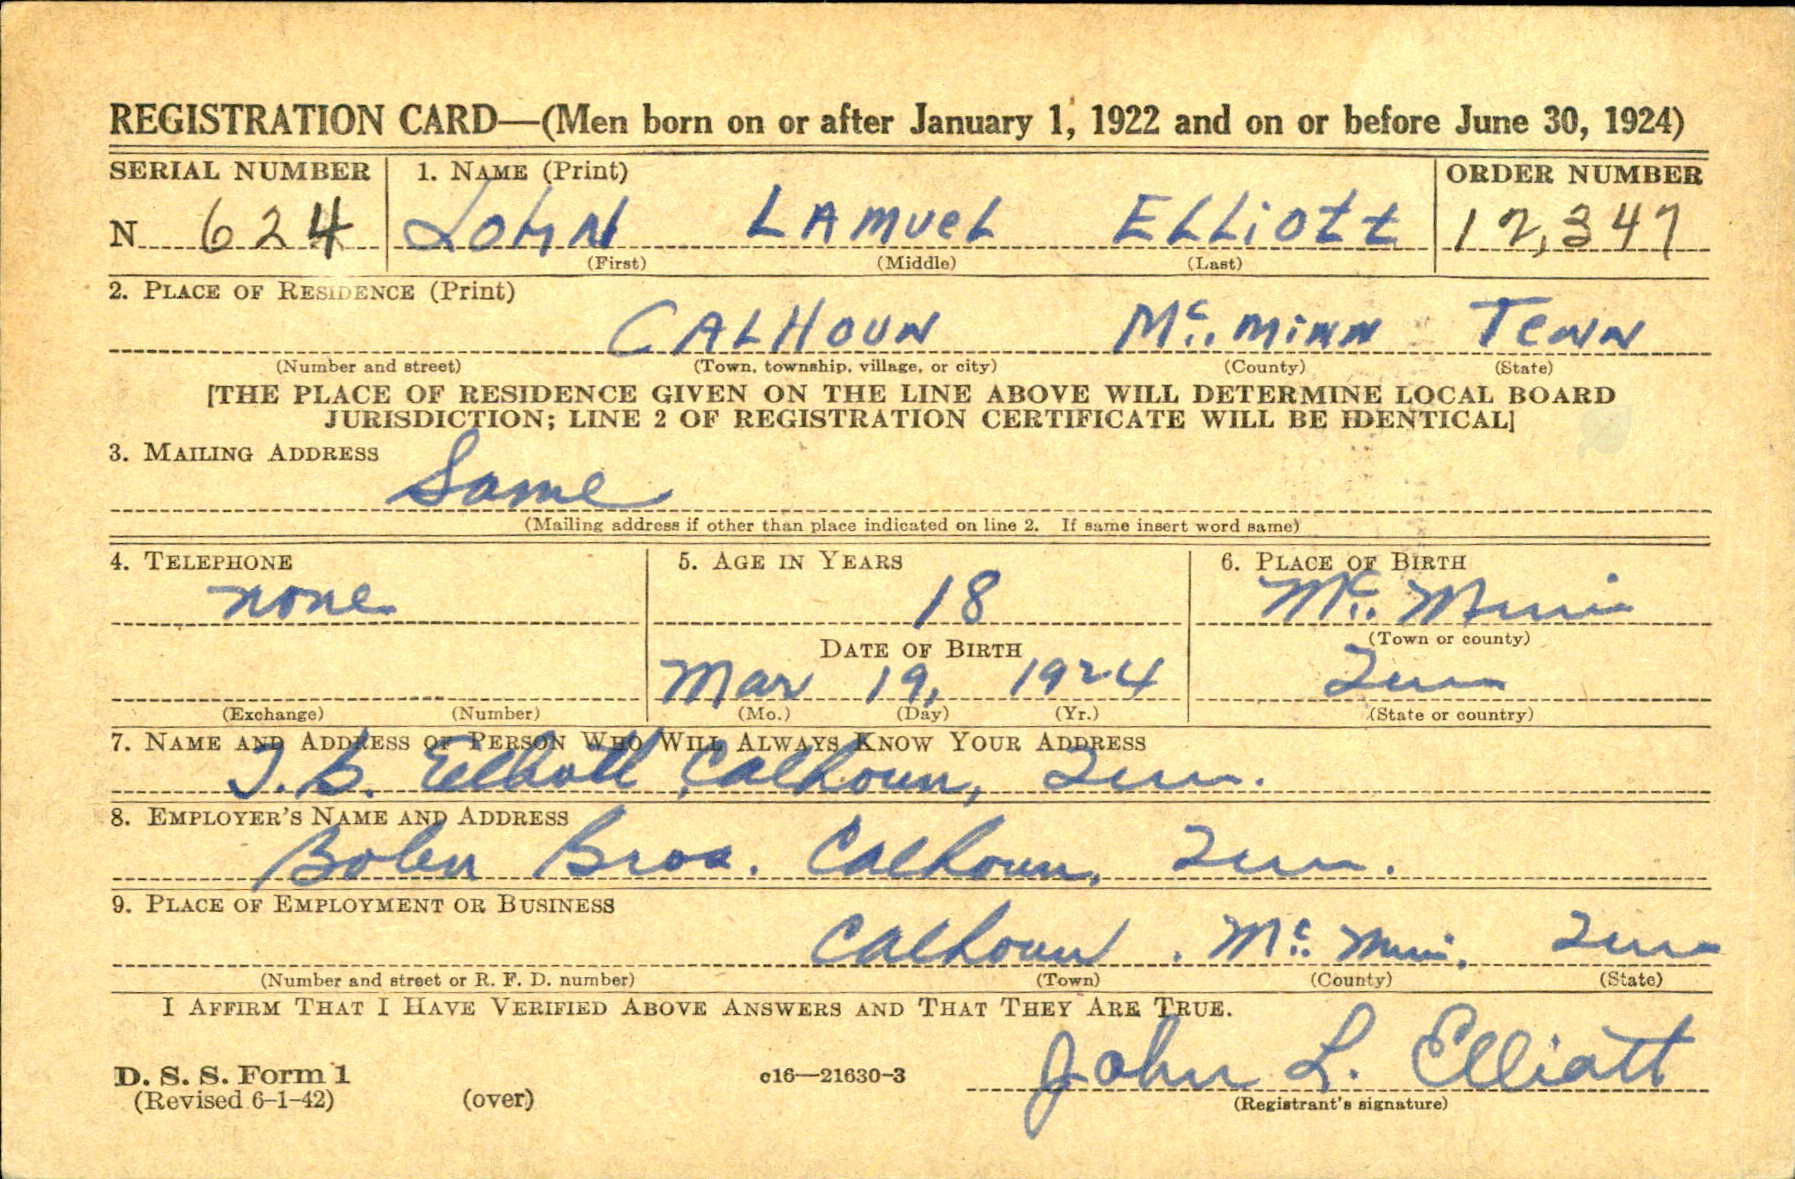 REGISTRATION CARD—(Men born on or after January 1, 1922 and on or before June 30, 1924)
SERIAL NUMBER 1. NAME (Print) ORDER NUMBER
N 624 JOHN LAMUEL ELLiOTT 12,347
(First) (Middle) (Last)
2. PLACE OF RESIDENCE (Print)
CALHOUN Mc. MINN TENN
(Number and street) (Town, township, village, or city) (County) (State)
[THE PLACE OF RESIDENCE GIVEN ON THE LINE ABOVE WILL DETERMINE LOCAL BOARD
JURISDICTION; LINE 2 OF REGISTRATION CERTIFICATE WILL BE IDENTICAL]
3. MAILING ADDRESS
Same
(Mailing address if other than place indicated on line 2. If same insert word same)
4. TELEPHONE 5. AGE IN YEARS 6. PLACE OF BIRTH
none 18 Mc. Minn
(Town or county)
DATE OF BIRTH
Mar 19, 1924 Tenn
(Exchange) (Number) (Mo.) (Day) (Yr.) (State or country)
7. NAME AND ADDRESS OF PERSON WHO WILL ALWAYS KNOW YOUR ADDRESS
Elliott Calhoun, Tenn.
8. EMPLOYER'S NAME AND ADDRESS
Bolen Bros. Calhoun, Tenn.
9. PLACE OF EMPLOYMENT OR BUSINESS
Calhoun, Mc. Minn, Tenn
(Number and street or R. F. D. number) (Town) (County) (State)
I AFFIRM THAT I HAVE VERIFIED ABOVE ANSWERS AND THAT THEY ARE TRUE.
D. S. S. Form 1
(Revised 6-1-42) (over) c16—21630-3 John L. Elliott
(Registrant's signature)